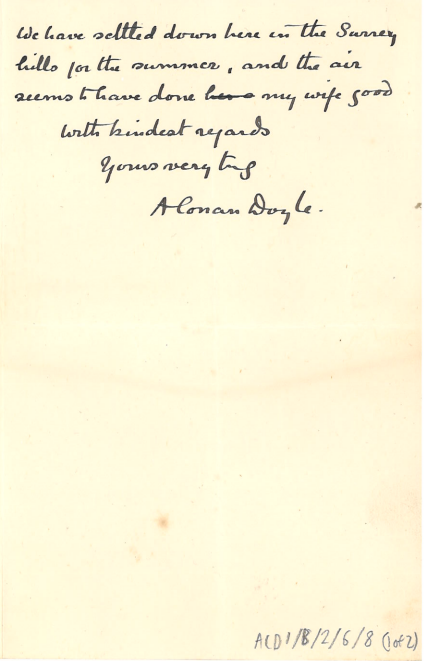 We have settled down here in the Surrey
hills for the summer, and the air
seems to have done my wife good
With kindest regards
Yours very truly
A Conan Doyle.
ACD1/B/2/6/8 (1 of 2)